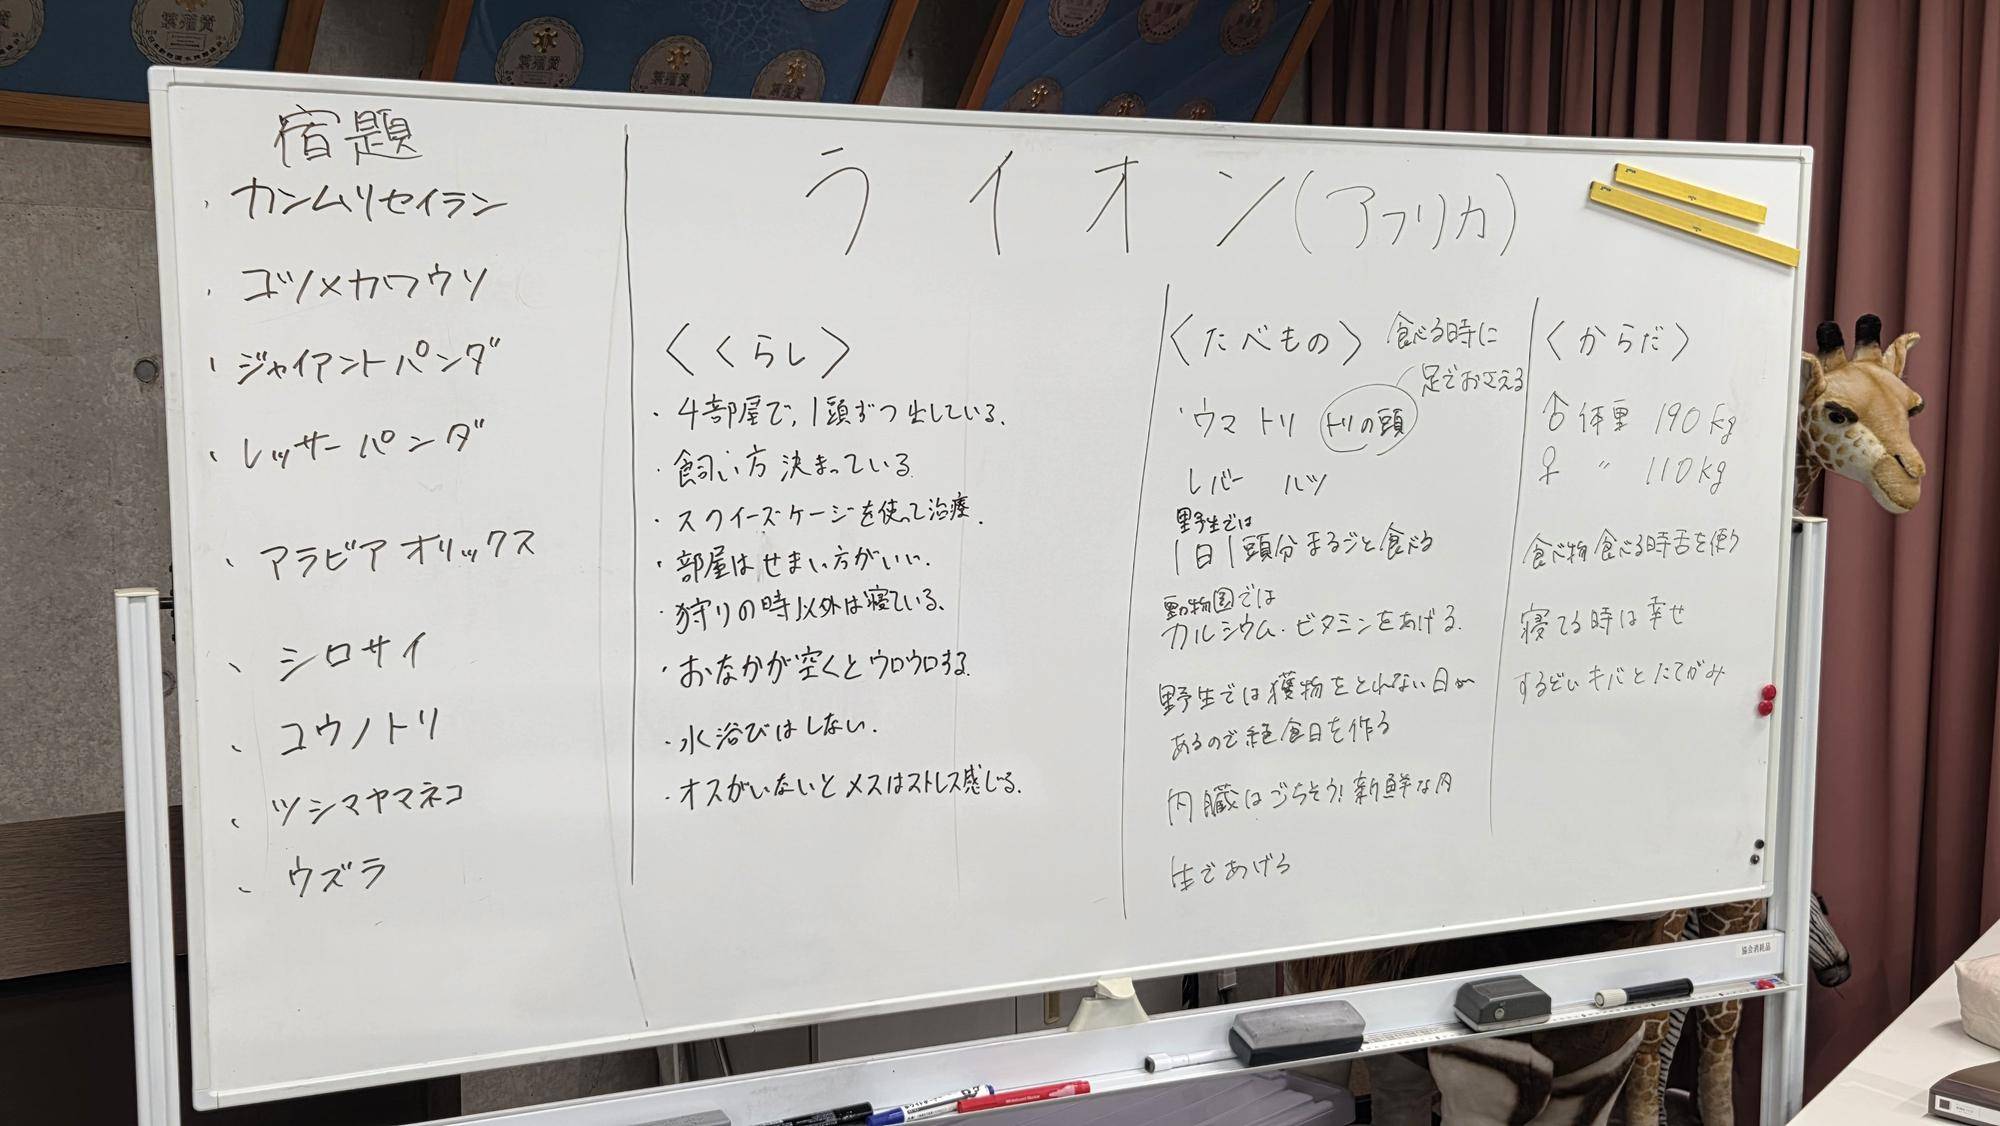 繁殖賞
繁殖賞
繁殖賞
繁殖賞
宿題
・カンムリセイラン
・コツメカワウソ
・ジャイアントパンダ
・レッサーパンダ
・アラビアオリックス
・シロサイ
・コウノトリ
・ツシマヤマネコ
・ウズラ
ライオン(アフリカ)
〈くらし〉
・4部屋で、1頭ずつ出している。
・飼い方決まっている
・スクイーズケージを使って治療。
・部屋はせまい方がいい。
・狩りの時以外は寝ている、
・おなかが空くとウロウロする。
・水浴びはしない。
・オスがいないとメスはストレス感じる。
〈たべもの〉
食べる時に
足でおさえる
・ウマ トリ トリの頭
レバー ハツ
野生では
1日1頭分まるごと食べる
動物園では
カルシウム・ビタミンをあげる。
野生では獲物をとれない日が
あるので絶食日を作る
内臓はごちそう!新鮮な内
生であげる
〈からだ〉
♂体重 190kg
♀ 〃 110kg
食べ物食べる時舌を使う
寝てる時は幸せ
するどいキバとたてがみ
協会消耗品